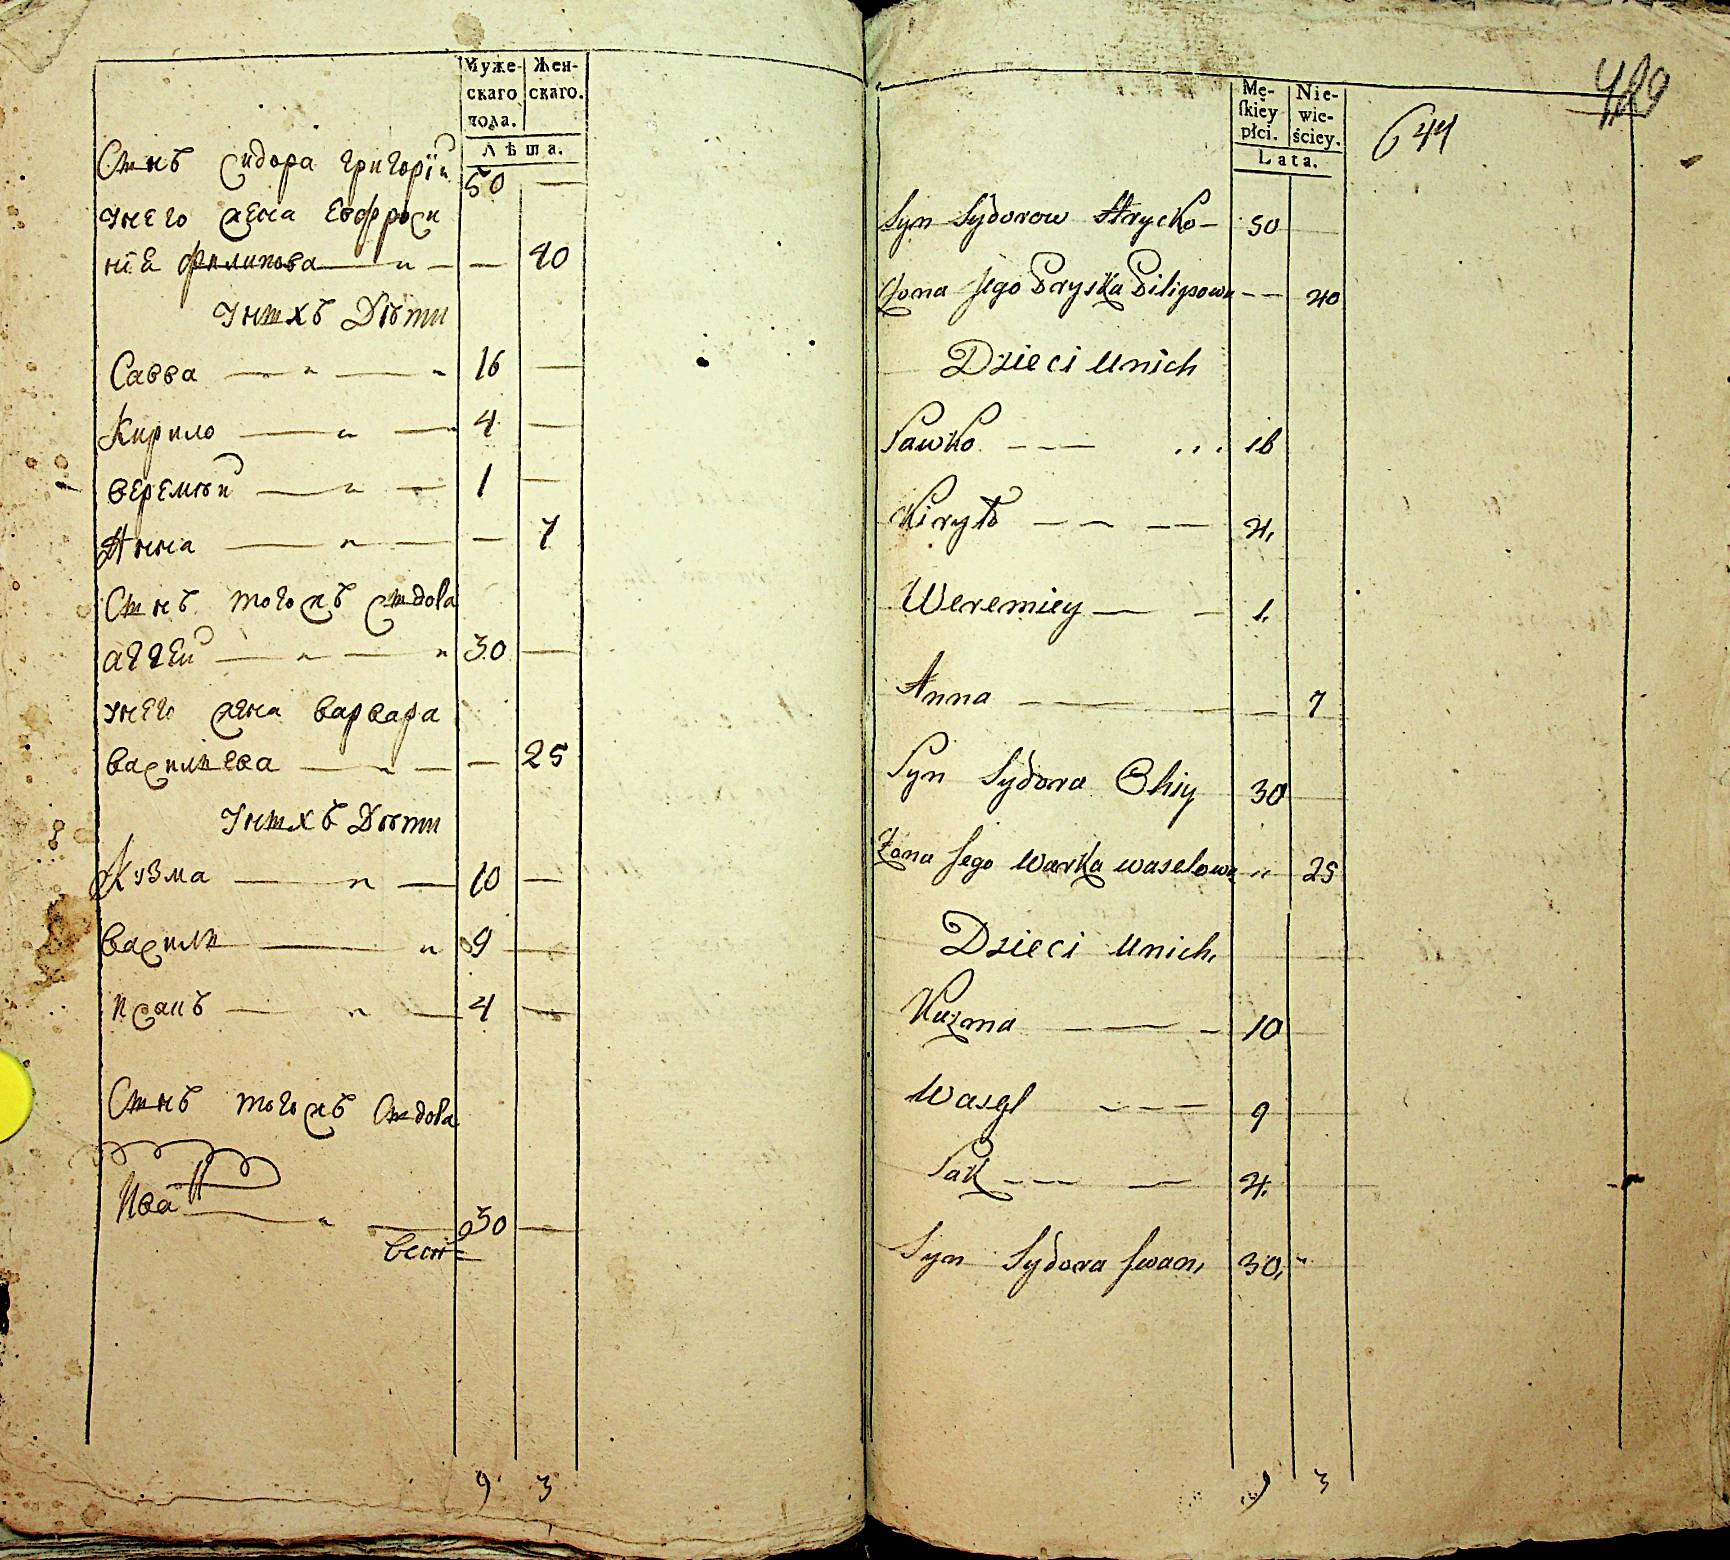 Муже- Жен-
скаго скаго.
пола.
Лѣта.
Сынъ Сидора Григорїй 50 —
унего жена Евфроси
нїя Филипова — „ — — 40
унихъ Дѣти
Савва — „ — „ 16 —
Кирило — „ — 4 —
Веремѣй — „ — 1 —
Анна — „ — — 7
Сынъ тогожъ Сидора
Аггей — „ — „ 30 —
унего жена Варвара
Василиева — „ — — 25
унихъ Дѣти
Кузма — „ — 10 —
Васили — „ 9 —
Исакъ — „ — 4 —
Сынъ тогожъ Сидора
Иванъ — „ — 30 —
9 3
420
Mę- Nie-
skiey wie-
płci. ściey.
Lata.
644
Syn Sydorow Hrycko — 50
Zona Jego Pryska Pilipowa — — 40
Dzieci Unich
Sawko — — — ... 16
Kiryło — — — — 4.
Weremiey — — 1.
Anna — — — 7
Syn Sydora Ohiy 30
Zona Jego Warka Waselowa „ 25
Dzieci Unich.
Kuzma — — — 10
Wasyl — — — 9
Sak — — — — 4.
Syn Sydora Jwan, 30. „
9 3